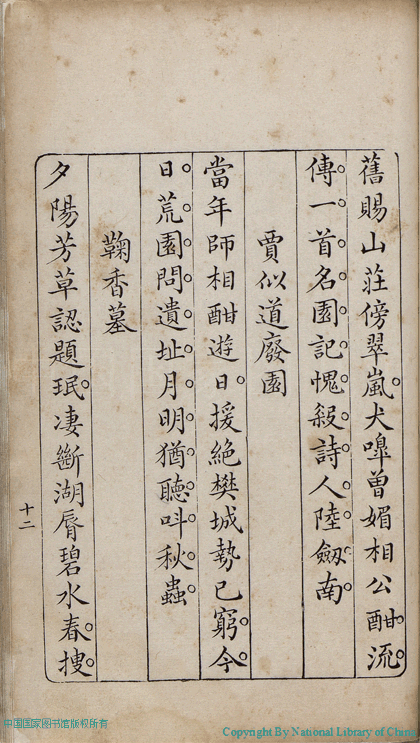 舊賜山莊傍翠嵐犬嘷曾媚相公酣流
傳一首名園記愧殺詩人陸劔南
賈似道廢園
當年師相酣遊日援絕樊城勢已窮今
日荒園問遺址月明猶聽呌秋蟲
鞠香墓
夕陽芳草認題珉凄斷湖脣碧水春搜
十二
中国国家图书馆版权所有
Copyright By National Library of China